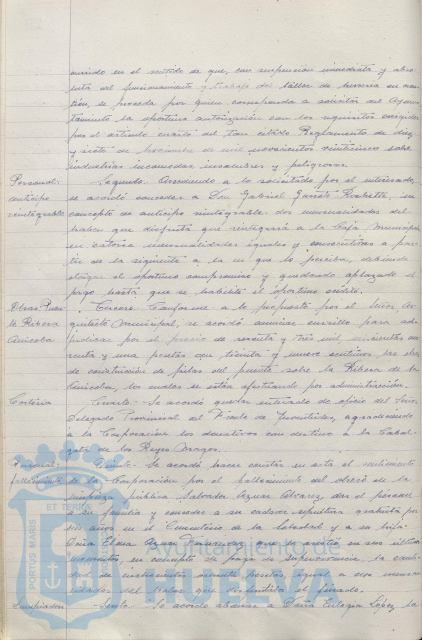 sentido en el sentido de que, con suspensión inmediata y abso-
luta del funcionamiento y trabajo del taller de herrería en cues-
tión, se proceda por quien corresponda a solicitar del Ayun-
tamiento la oportuna autorización con los requisitos exigidos
por el artículo cuarto del tan citado Reglamento de diez
y siete de Noviembre de mil novecientos veinticinco sobre
industrias incómodas, insalubres y peligrosas.
Personal:
anticipo
reintegrable
Segundo. Accediendo a lo solicitado por el interesado,
se acordó conceder a Don Gabriel Garrote en
concepto de anticipo reintegrable dos mensualidades del
haber que disfruta que reintegrará a la Caja Municipal
en catorce mensualidades iguales y consecutivas a par-
tir de la siguiente a la en que lo perciba, debiendo
otorgar el oportuno compromiso y quedando aplazado el
pago hasta que se habilite el oportuno crédito.
Obras Puen-
te Ribera
Anicoba
Tercero. Conforme a lo propuesto por el Señor Ar-
quitecto Municipal, se acordó anunciar concurso para ad-
judicar por el precio de sesenta y tres mil quinientas se-
senta y una pesetas con treinta y nueve céntimos las obras
de construcción de pilas del puente sobre la Ribera de la
Anicoba, las cuales se están efectuando por administración.
Cortesía
Cuarto. Se acordó quedar enterado de oficio del Señor
Delegado Provincial del Frente de Juventudes, agradeciendo
a la Corporación los donativos con destino a la Cabal-
gata de los Reyes Magos.
Personal:
fallecimiento
Quinto. Se acordó hacer constar en acta el sentimiento
de la Corporación por el fallecimiento del obrero de la
limpieza pública Salvador Aznar Álvarez, dar el pésame
a su familia y conceder a su cadáver sepultura gratuita por
seis años en el Cementerio de la Soledad y a su hija
Doña Elena Aznar que le asistió en sus últimos
momentos, en concepto de paga de supervivencia, la canti-
dad de pesetas igual a dos mensua-
lidades del haber que disfrutaba el finado.
Sexto. Se acordó abonar a Doña Eulogia López, la
PORTUS MARIS
ET TERRÆ
Ayuntamiento de
HUELVA